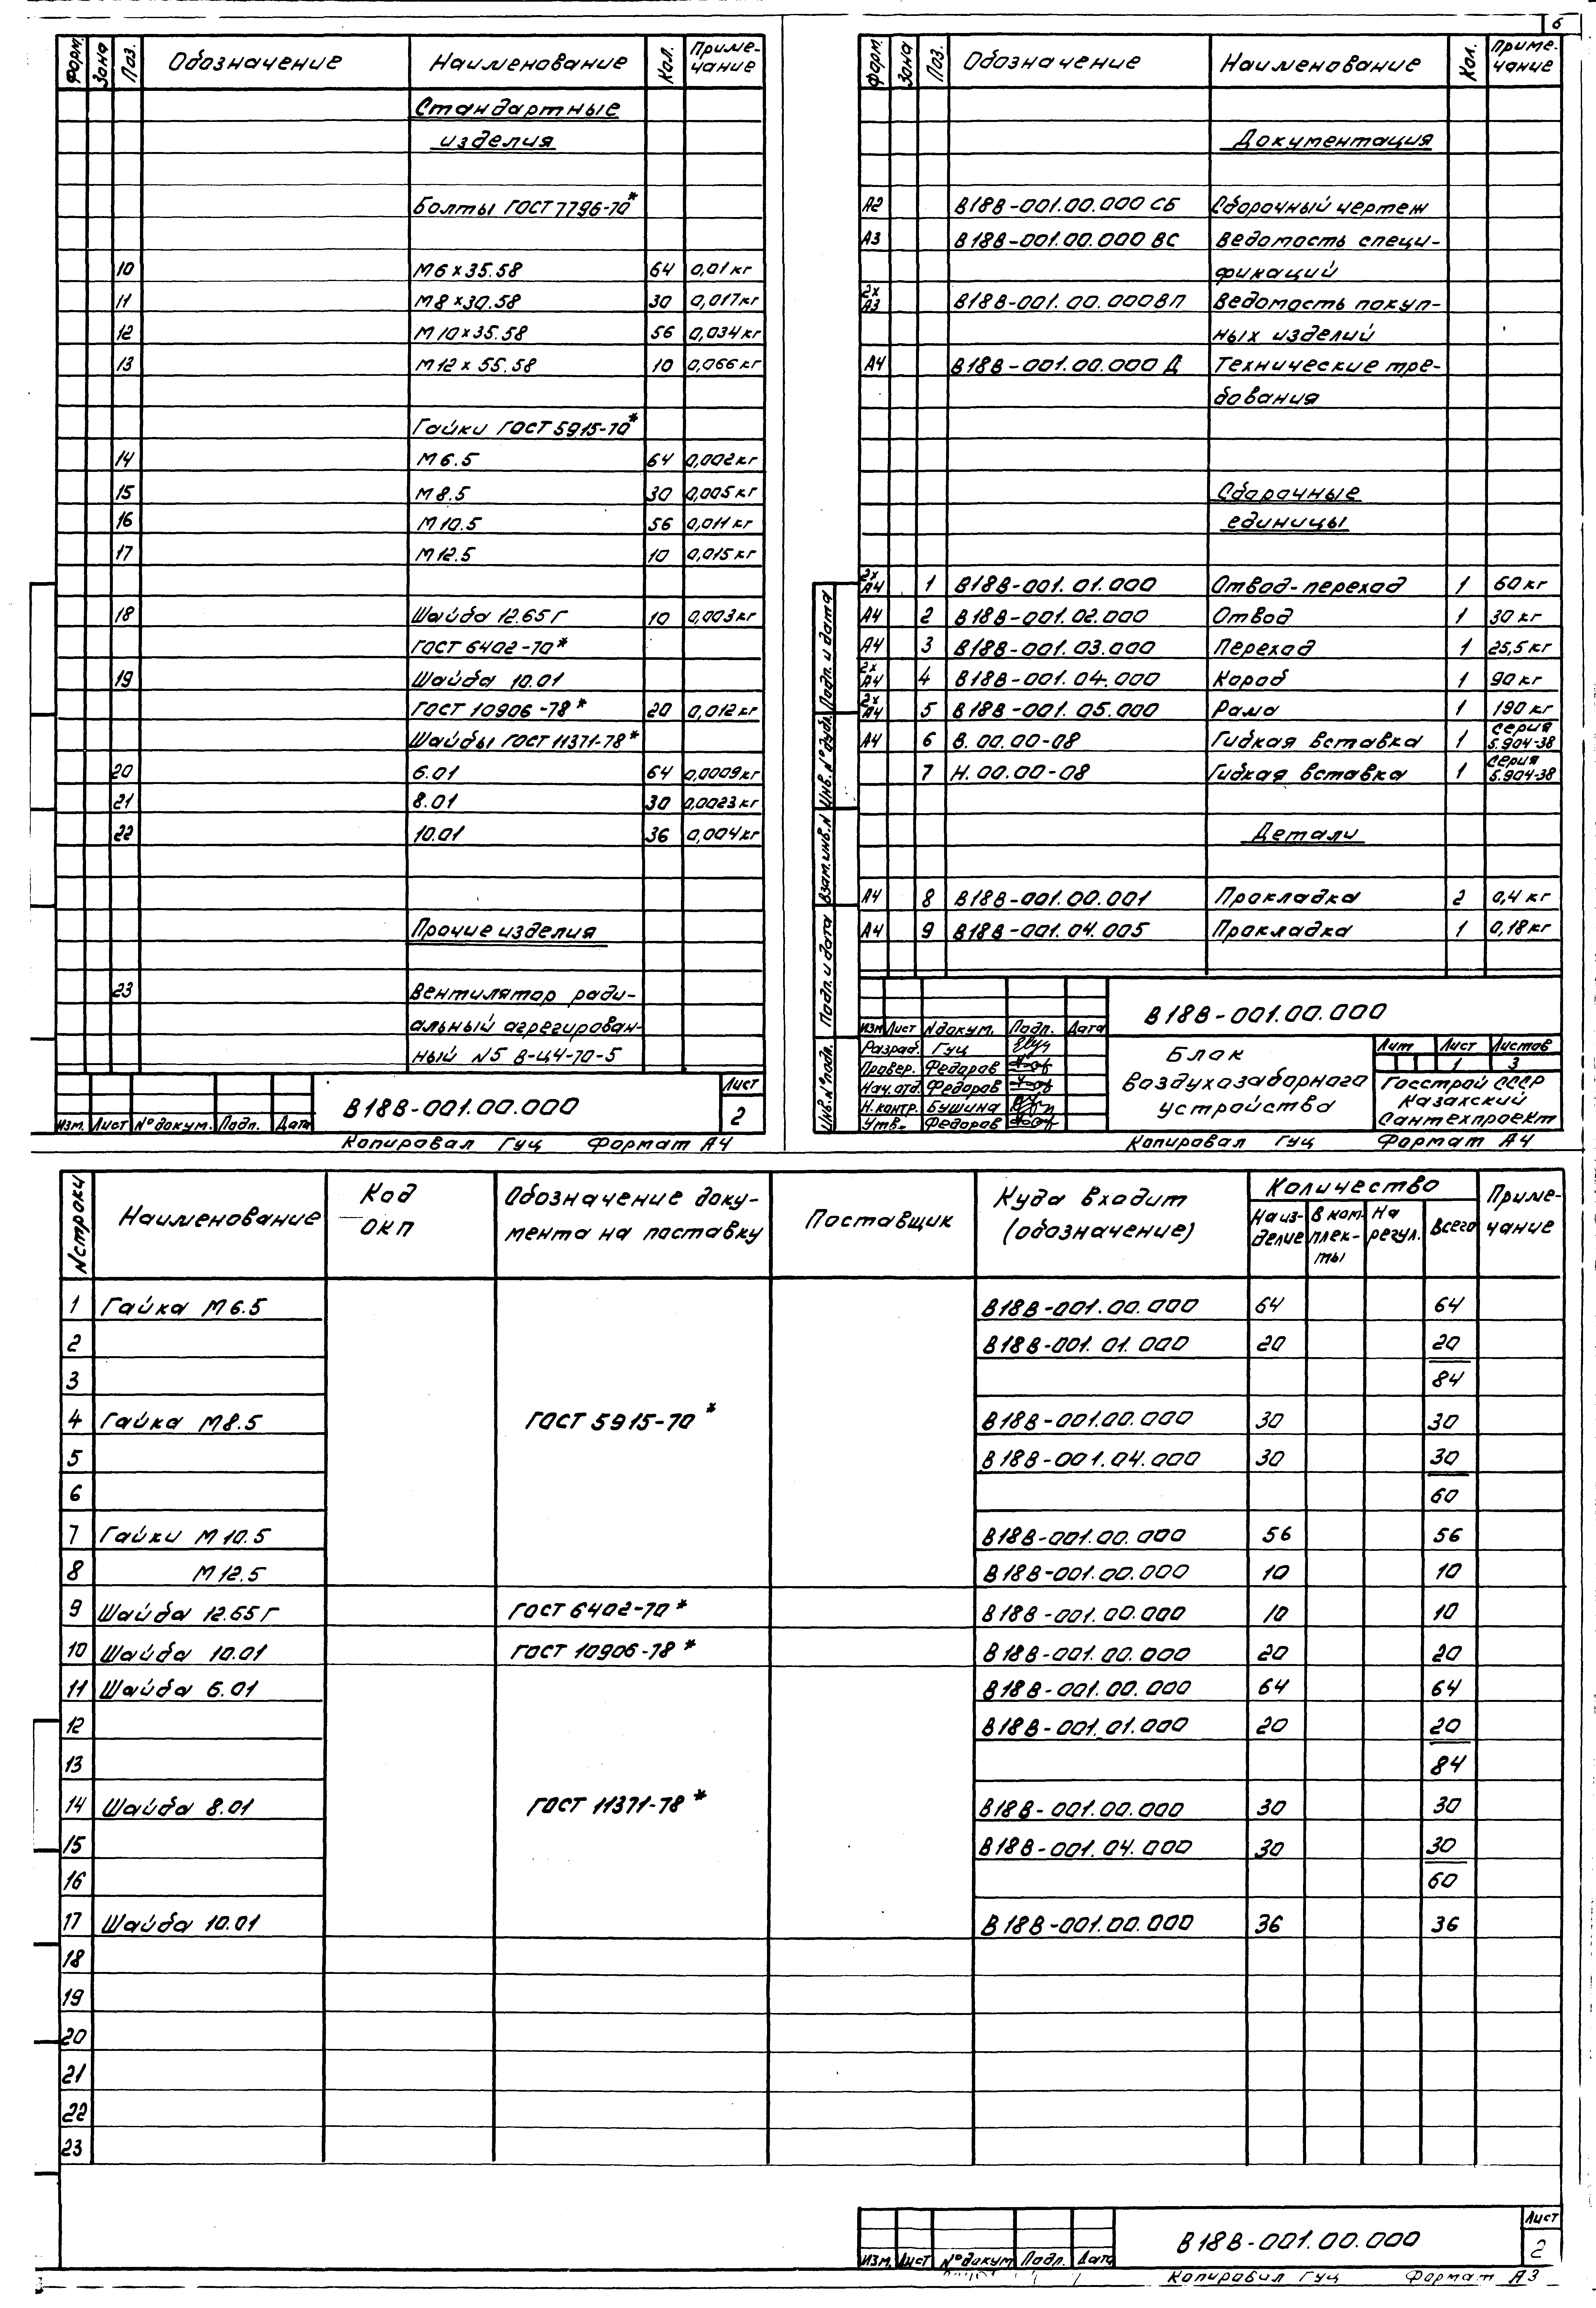 6
Форм. Зона Поз. Обозначение Наименование Кол. Приме-
чание
Стандартные
изделия
Болты ГОСТ 7796-70*
10 М6х35.58 64 0,01кг
11 М8х30.58 30 0,017кг
12 М10х35.58 56 0,034кг
13 М12х55.58 10 0,066кг
Гайки ГОСТ 5915-70*
14 М6.5 64 0,002кг
15 М8.5 30 0,005кг
16 М10.5 56 0,011кг
17 М12.5 10 0,015кг
18 Шайба 12.65Г 10 0,003кг
ГОСТ 6402-70*
19 Шайба 10.01
ГОСТ 10906-78* 20 0,012кг
Шайбы ГОСТ 11371-78*
20 6.01 64 0,0009кг
21 8.01 30 0,0023кг
22 10.01 36 0,004кг
Прочие изделия
23 Вентилятор ради-
альный агрегирован-
ный N5 В-Ц4-70-5
Изм. Лист №докум. Подп. Дата
В18В-001.00.000
Лист
2
Копировал Гуц Формат А4
Форм. Зона Поз. Обозначение Наименование Кол. Приме-
чание
Документация
А2 В18В-001.00.000 СБ Сборочный чертеж
А3 В18В-001.00.000 ВС Ведомость специ-
фикаций
2х
А3 В18В-001.00.000ВП Ведомость покуп-
ных изделий
А4 В18В-001.00.000 Д Технические тре-
бования
Сборочные
единицы
2х
А4 1 В18В-001.01.000 Отвод-переход 1 60кг
А4 2 В18В-001.02.000 Отвод 1 30кг
А4 3 В18В-001.03.000 Переход 1 25,5кг
2х
А4 4 В18В-001.04.000 Короб 1 90кг
2х
А4 5 В18В-001.05.000 Рама 1 190кг
А4 6 В.00.00-08 Гибкая вставка 1 серия
5.904-38
7 Н.00.00-08 Гибкая вставка 1 серия
5.904-38
Детали
А4 8 В18В-001.00.001 Прокладка 2 0,4кг
А4 9 В18В-001.04.005 Прокладка 1 0,18кг
Инв.№подл. Подп. и дата Взам.инв.N Инв.№дубл. Подп. и дата
Изм Лист Nдокум. Подп. Дата
Разраб. Гуц
Провер. Федоров
Нач.отд. Федоров
Н.контр. Бушина
Утв. Федоров
В18В-001.00.000
Блок
воздухозаборного
устройства
Лит Лист Листов
1 3
Госстрой СССР
Казахский
Сантехпроект
Копировал Гуц Формат А4
Nстроки Наименование Код
ОКП Обозначение доку-
мента на поставку Поставщик Куда входит
(обозначение) Количество Приме-
чание
На из-
делие В ком-
плек-
ты На
регул. Всего
1 Гайка М6.5 В18В-001.00.000 64 64
2 В18В-001.01.000 20 20
3 84
4 Гайка М8.5 ГОСТ 5915-70* В18В-001.00.000 30 30
5 В18В-001.04.000 30 30
6 60
7 Гайки М10.5 В18В-001.00.000 56 56
8 М12.5 В18В-001.00.000 10 10
9 Шайба 12.65Г ГОСТ 6402-70* В18В-001.00.000 10 10
10 Шайба 10.01 ГОСТ 10906-78* В18В-001.00.000 20 20
11 Шайба 6.01 В18В-001.00.000 64 64
12 В18В-001.01.000 20 20
13 84
14 Шайба 8.01 ГОСТ 11371-78* В18В-001.00.000 30 30
15 В18В-001.04.000 30 30
16 60
17 Шайба 10.01 В18В-001.00.000 36 36
18
19
20
21
22
23
Изм. Лист №докум Подп. Дата
В18В-001.00.000
Лист
2
Копировал Гуц Формат А3